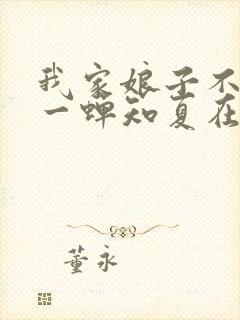 我家娘子不
一蝉知夏在
董永